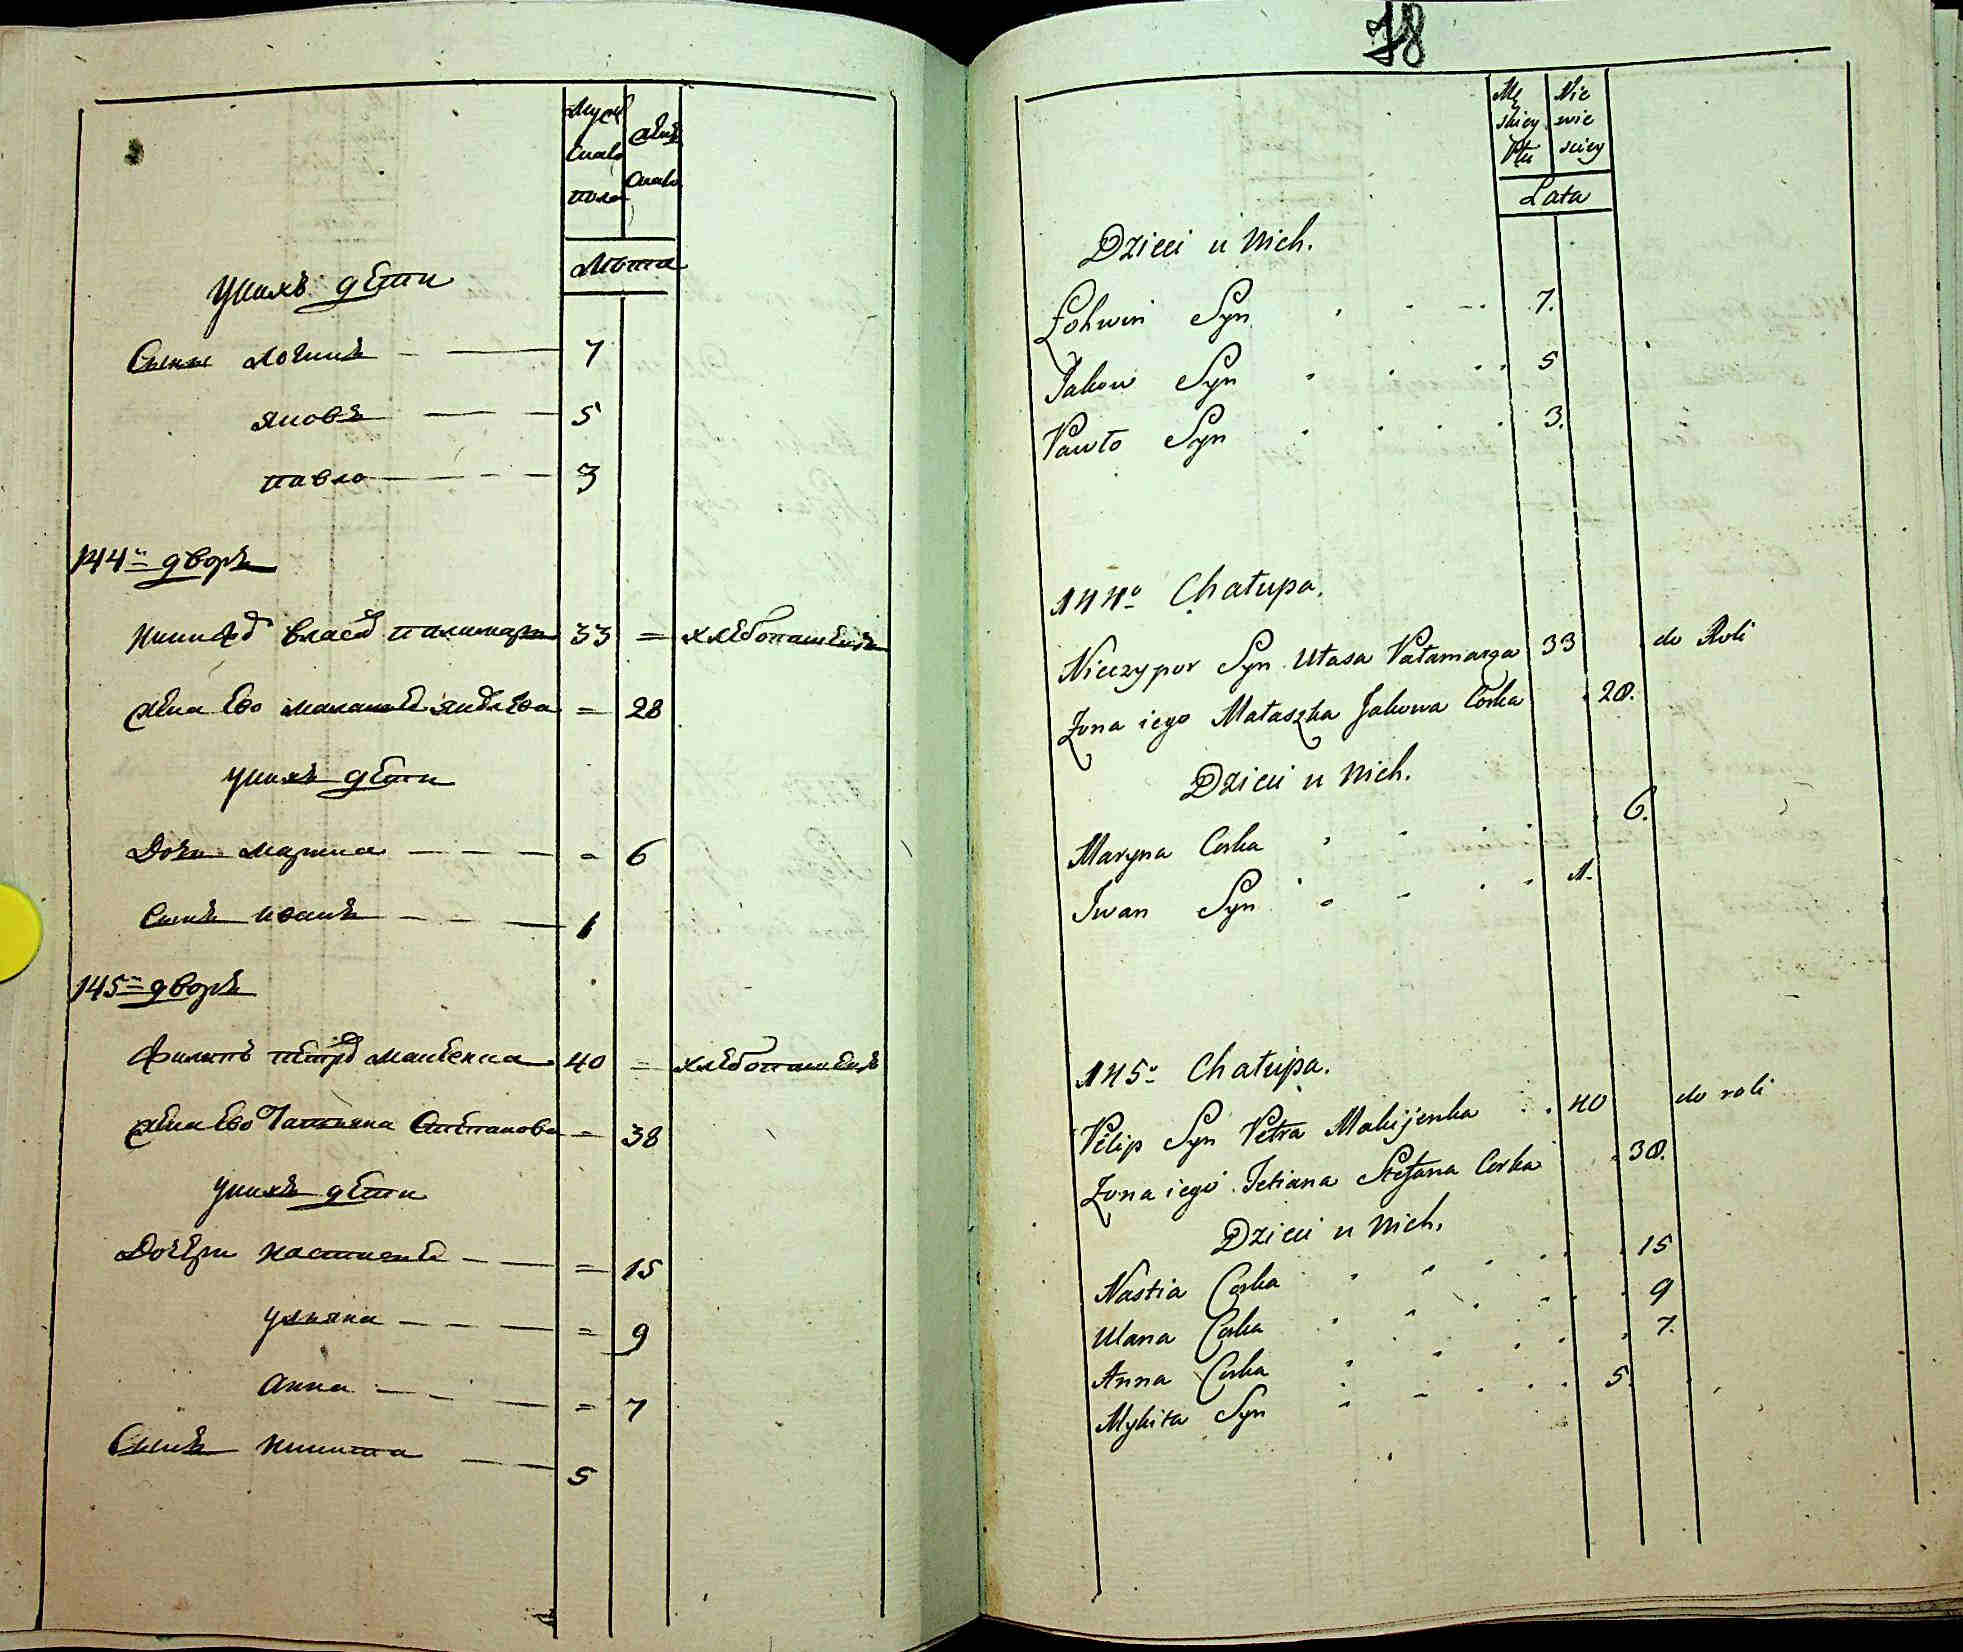 Мужска пола
Женска
Лѣта
У нихъ дѣти
Сыны Логинъ 7
Яковъ 5
Павло 3
144й дворъ
Никифоръ Власовъ Паламаръ 33 = хлѣбопашецъ
Жена ево Маланья Яковлева = 28
У нихъ дѣти
Дочь Марина = 6
Сынъ Иванъ 1
145й дворъ
Филипъ Петровъ Макеенка 40 = хлѣбопашецъ
Жена ево Татьяна Степанова = 38
У нихъ дѣти
Дочери Настасья = 15
Ульяна = 9
Анна = 7
Сынъ Никита 5
78
Mę skiey Płci
Nie wie sciey
Lata
Dzieci u Nich.
Łohwin Syn 7.
Jakow Syn 5
Pawło Syn 3.
144o Chałupa.
Nieczypor Syn Ułasa Pałamarza 33 do Roli
Zona iego Małaszka Jakowa Corka 28.
Dzieci u Nich.
Maryna Corka 6.
Iwan Syn 1.
145o Chałupa.
Pilip Syn Petra Makijenka 40 do roli
Zona iego Tetiana Stefana Corka 38.
Dzieci u Nich.
Nastia Corka 15
Ulana Corka 9
Anna Corka 7.
Mykita Syn 5.